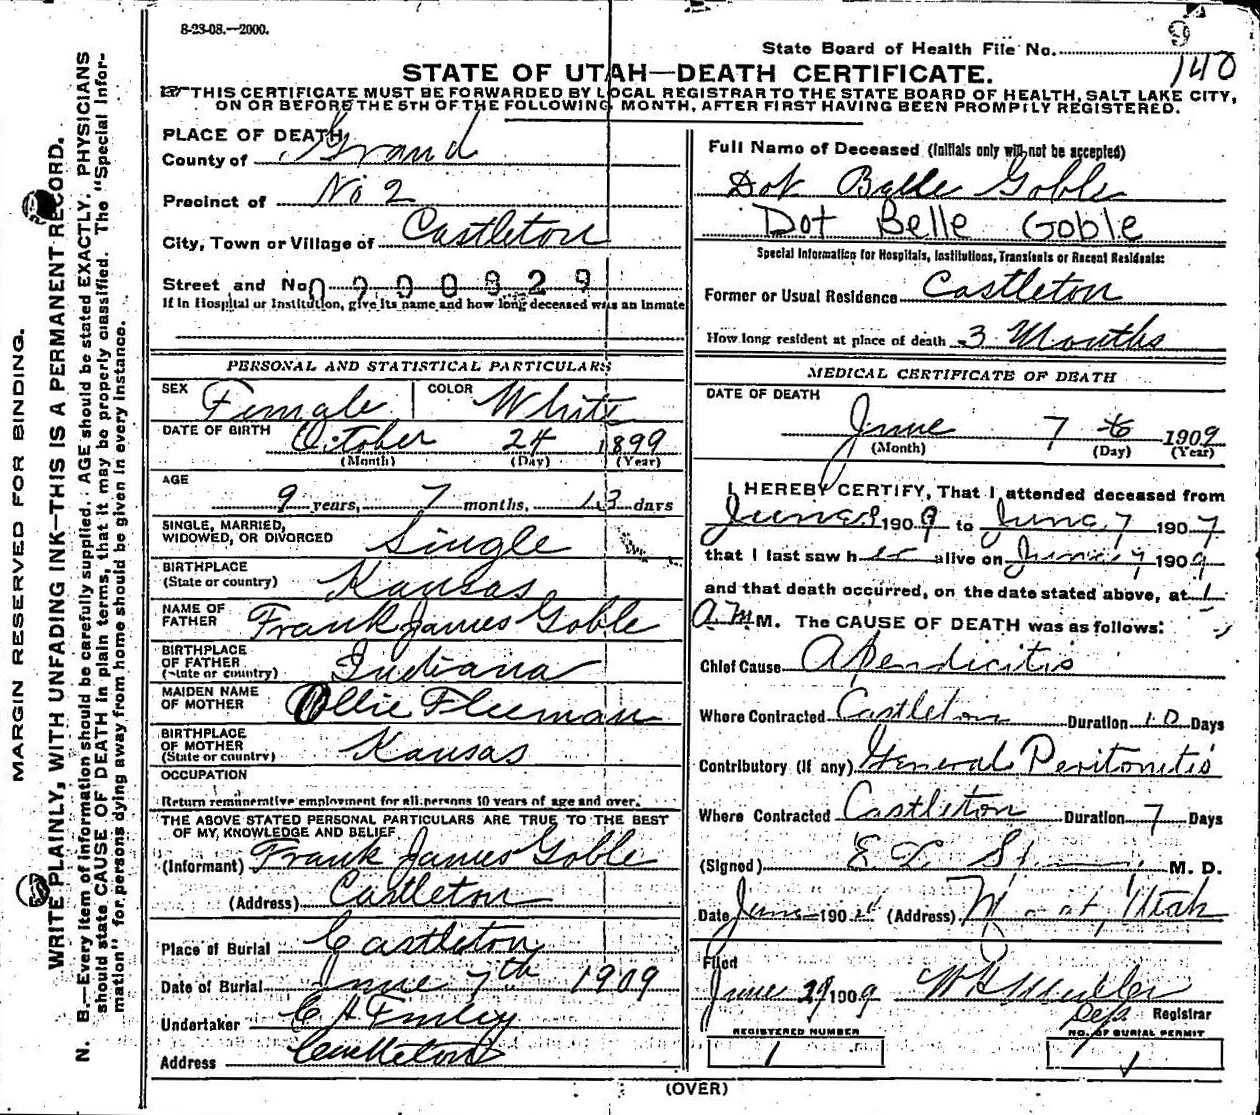 8-23-08.—2000.
State Board of Health File No. 9
140
STATE OF UTAH—DEATH CERTIFICATE.
THIS CERTIFICATE MUST BE FORWARDED BY LOCAL REGISTRAR TO THE STATE BOARD OF HEALTH, SALT LAKE CITY,
ON OR BEFORE THE 5TH OF THE FOLLOWING MONTH, AFTER FIRST HAVING BEEN PROMPTLY REGISTERED.
MARGIN RESERVED FOR BINDING.
WRITE PLAINLY, WITH UNFADING INK—THIS IS A PERMANENT RECORD.
N. B.—Every item of information should be carefully supplied. AGE should be stated EXACTLY. PHYSICIANS
should state CAUSE OF DEATH in plain terms, that it may be properly classified. The "Special Infor-
mation" for persons dying away from home should be given in every instance.
PLACE OF DEATH
County of Grand
Precinct of No 2
City, Town or Village of Castleton
Street and No. 0900829
If in Hospital or Institution, give its name and how long deceased was an Inmate
PERSONAL AND STATISTICAL PARTICULARS
SEX Female COLOR White
DATE OF BIRTH October 24 1899
(Month) (Day) (Year)
AGE
9 years, 7 months, 13 days
SINGLE, MARRIED,
WIDOWED, OR DIVORCED Single
BIRTHPLACE
(State or country) Kansas
NAME OF
FATHER Frank James Goble
BIRTHPLACE
OF FATHER
(State or country) Indiana
MAIDEN NAME
OF MOTHER Ollie Fleeman
BIRTHPLACE
OF MOTHER
(State or country) Kansas
OCCUPATION
Return remunerative employment for all persons 10 years of age and over.
THE ABOVE STATED PERSONAL PARTICULARS ARE TRUE TO THE BEST
OF MY KNOWLEDGE AND BELIEF
(Informant) Frank James Goble
(Address) Castleton
Place of Burial Castleton
Date of Burial June 7th 1909
Undertaker C H Finley
Address Castleton
Full Name of Deceased (Initials only will not be accepted)
Dot Belle Goble
Dot Belle Goble
Special Information for Hospitals, Institutions, Transients or Recent Residents:
Former or Usual Residence Castleton
How long resident at place of death 3 Months
MEDICAL CERTIFICATE OF DEATH
DATE OF DEATH
June 7 6 1909
(Month) (Day) (Year)
I HEREBY CERTIFY, That I attended deceased from
June 1909 to June 7 1907
that I last saw her alive on June 7 1909
and that death occurred, on the date stated above, at 1
A.M. M. The CAUSE OF DEATH was as follows:
Chief Cause Apendicitis
Where Contracted Castleton Duration 10 Days
Contributory (if any) General Peritonitis
Where Contracted Castleton Duration 7 Days
(Signed) M. D.
Date June 190 (Address) Utah
Filed
June 29 1909
Dep. Registrar
REGISTERED NUMBER
1
NO. OF BURIAL PERMIT
1
(OVER)